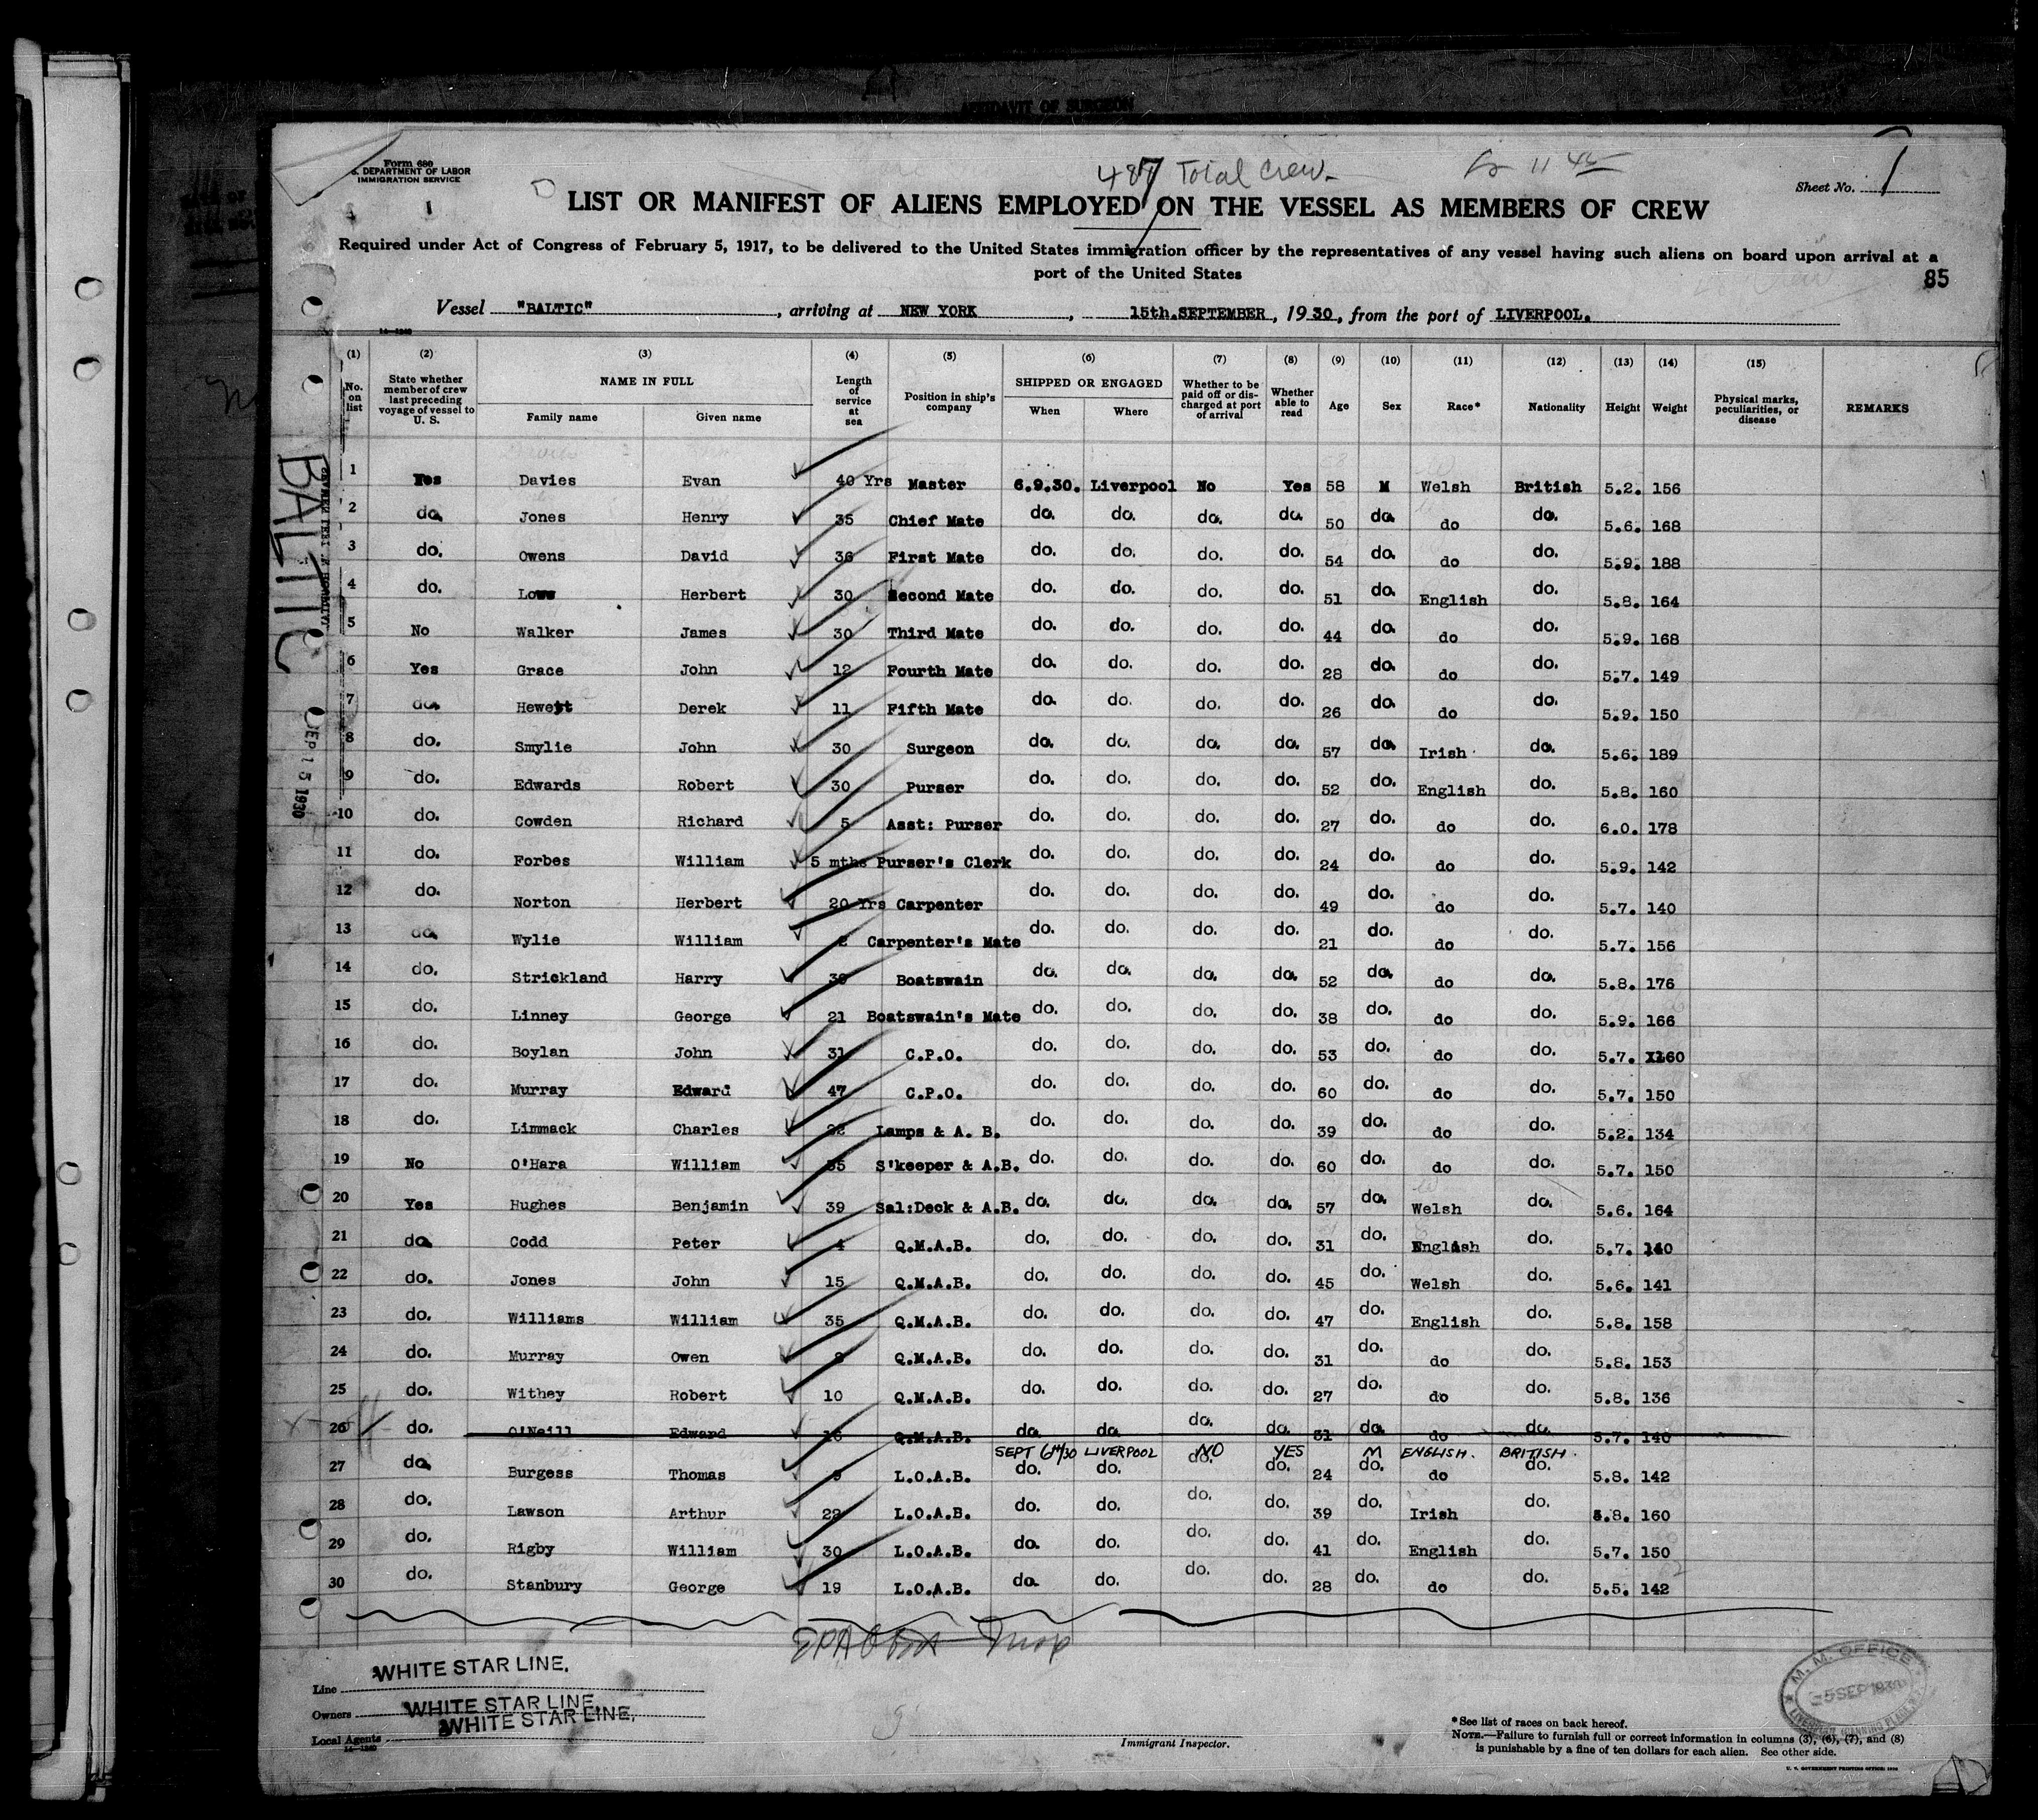 AFFIDAVIT OF SURGEON
Form 680
S. DEPARTMENT OF LABOR
IMMIGRATION SERVICE
487 Total Crew
Sheet No. 1
LIST OR MANIFEST OF ALIENS EMPLOYED ON THE VESSEL AS MEMBERS OF CREW
Required under Act of Congress of February 5, 1917, to be delivered to the United States immigration officer by the representatives of any vessel having such aliens on board upon arrival at a
port of the United States
85
Vessel "BALTIC", arriving at NEW YORK, 15th.SEPTEMBER, 1930, from the port of LIVERPOOL.
14—1240
(1) (2) (3) (4) (5) (6) (7) (8) (9) (10) (11) (12) (13) (14) (15)
No. on list
State whether member of crew last preceding voyage of vessel to U. S.
NAME IN FULL
Family name Given name
Length of service at sea
Position in ship's company
SHIPPED OR ENGAGED
When Where
Whether to be paid off or discharged at port of arrival
Whether able to read
Age Sex Race* Nationality Height Weight
Physical marks, peculiarities, or disease
REMARKS
1 Yes Davies Evan 40 Yrs Master 6.9.30. Liverpool No Yes 58 M Welsh British 5.2. 156
2 do. Jones Henry 35 Chief Mate do. do. do. do. 50 do. do do. 5.6. 168
3 do. Owens David 36 First Mate do. do. do. do. 54 do. do do. 5.9. 188
4 do. Herbert 30 Second Mate do. do. do. do. 51 do. English do. 5.8. 164
5 No Walker James 30 Third Mate do. do. do. do. 44 do. do do. 5.9. 168
6 Yes Grace John 12 Fourth Mate do. do. do. do. 28 do. do do. 5.7. 149
7 do. Hewett Derek 11 Fifth Mate do. do. do. do. 26 do. do do. 5.9. 150
8 do. Smylie John 30 Surgeon do. do. do. do. 57 do. Irish do. 5.6. 189
9 do. Edwards Robert 30 Purser do. do. do. do. 52 do. English do. 5.8. 160
10 do. Cowden Richard 5 Asst: Purser do. do. do. do. 27 do. do do. 6.0. 178
11 do. Forbes William 5 mths Purser's Clerk do. do. do. do. 24 do. do do. 5.9. 142
12 do. Norton Herbert 20 Yrs Carpenter do. do. do. do. 49 do. do do. 5.7. 140
13 do. Wylie William 2 Carpenter's Mate do. do. do. do. 21 do. do do. 5.7. 156
14 do. Strickland Harry 30 Boatswain do. do. do. do. 52 do. do do. 5.8. 176
15 do. Linney George 21 Boatswain's Mate do. do. do. do. 38 do. do do. 5.9. 166
16 do. Boylan John 31 C.P.O. do. do. do. do. 53 do. do do. 5.7. 160
17 do. Murray Edward 47 C.P.O. do. do. do. do. 60 do. do do. 5.7. 150
18 do. Limmack Charles 22 Lamps & A. B. do. do. do. do. 39 do. do do. 5.2. 134
19 No O'Hara William 35 S'keeper & A.B. do. do. do. do. 60 do. do do. 5.7. 150
20 Yes Hughes Benjamin 39 Sal:Deck & A.B. do. do. do. do. 57 do. Welsh do. 5.6. 164
21 do. Codd Peter 4 Q.M.A.B. do. do. do. do. 31 do. English do. 5.7. 140
22 do. Jones John 15 Q.M.A.B. do. do. do. do. 45 do. Welsh do. 5.6. 141
23 do. Williams William 35 Q.M.A.B. do. do. do. do. 47 do. English do. 5.8. 158
24 do. Murray Owen Q.M.A.B. do. do. do. do. 31 do. do do. 5.8. 153
25 do. Withey Robert 10 Q.M.A.B. do. do. do. do. 27 do. do do. 5.8. 136
26 do. O'Neill Edward 16 Q.M.A.B. do. do. do. do. 31 do. do do. 5.7. 140
SEPT 6th/30 LIVERPOOL NO YES M ENGLISH. BRITISH.
27 do. Burgess Thomas L.O.A.B. do. do. do. do. 24 do. do do. 5.8. 142
28 do. Lawson Arthur 22 L.O.A.B. do. do. do. do. 39 do. Irish do. 5.8. 160
29 do. Rigby William 30 L.O.A.B. do. do. do. do. 41 do. English do. 5.7. 150
30 do. Stanbury George 19 L.O.A.B. do. do. do. do. 28 do. do do. 5.5. 142
BALTIC
SEP 15 1930
Line WHITE STAR LINE.
Owners WHITE STAR LINE,
Local Agents WHITE STAR LINE,
14—1240
Immigrant Inspector.
M. M. OFFICE
5 SEP 1930
*See list of races on back hereof.
NOTE.—Failure to furnish full or correct information in columns (3), (6), (7), and (8)
is punishable by a fine of ten dollars for each alien. See other side.
U. S. GOVERNMENT PRINTING OFFICE: 1930